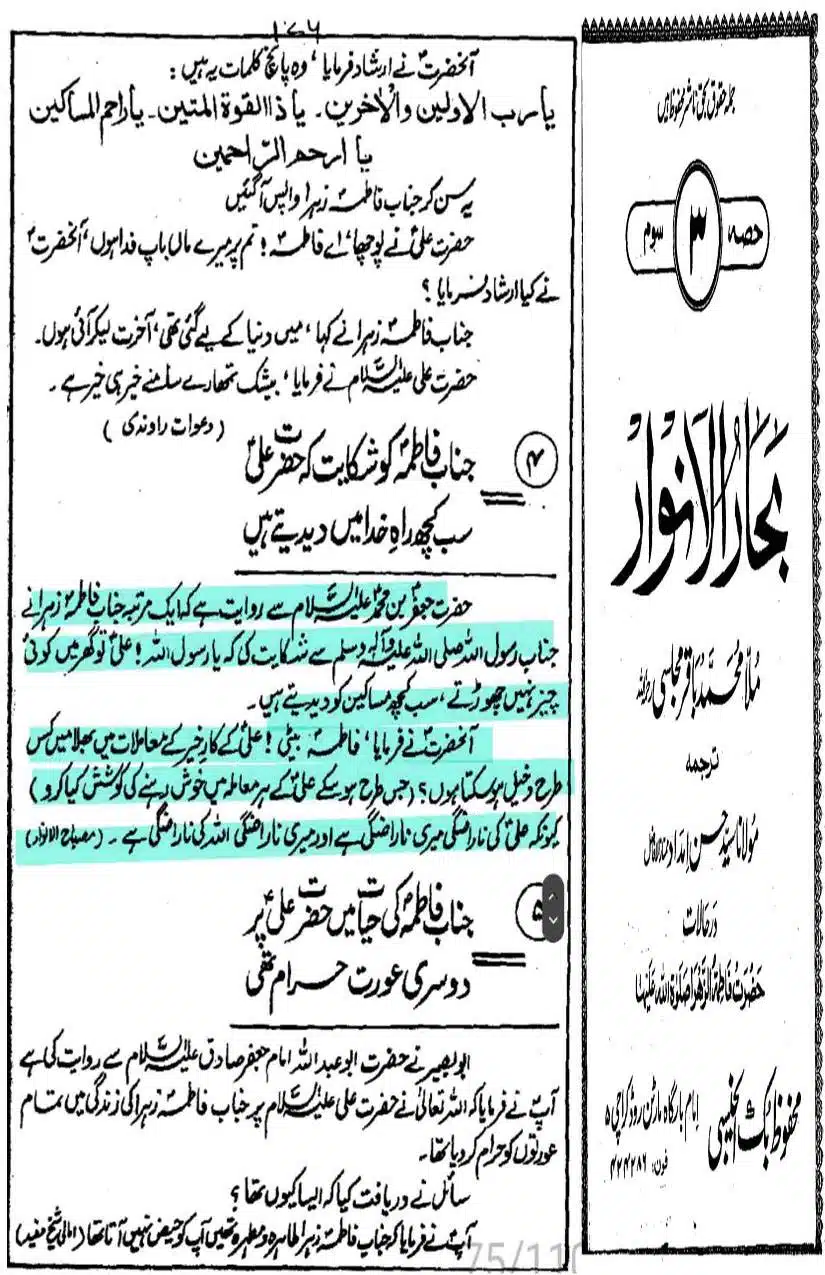 ۱۷۶
آنحضرتؐ نے ارشاد فرمایا، وہ پانچ کلمات یہ ہیں:
یا رب الاولین والاٰخرین۔ یا ذا القوة المتین۔ یا راحم المساکین
یا ارحم الرّاحمین
یہ سن کر جناب فاطمہؑ زہرا واپس آگئیں
حضرت علیؑ نے پوچھا، اے فاطمہؑ! تم پر میرے ماں باپ فدا ہوں، آنحضرتؐ
نے کیا ارشاد فرمایا؟
جناب فاطمہؑ زہرا نے کہا، میں دنیا کے لیے گئی تھی، آخرت لیکر آئی ہوں۔
حضرت علی علیہ السّلام نے فرمایا، بیشک تمھارے سامنے خیر ہی خیر ہے۔
(دعوات راوندی)
۴ جناب فاطمہؑ کو شکایت کہ حضرت علیؑ
سب کچھ راہِ خدا میں دیدیتے ہیں
حضرت جعفرؑ بن محمدؑ علیہ السّلام سے روایت ہے کہ ایک مرتبہ جناب فاطمہؑ زہرا نے
جناب رسول اللہ صلی اللہ علیہ وآلہ وسلم سے شکایت کی کہ یا رسول اللہ! علیؑ تو گھر میں کوئی
چیز نہیں چھوڑتے، سب کچھ مساکین کو دیدیتے ہیں۔
آنحضرتؐ نے فرمایا، فاطمہؑ بیٹی! علیؑ کے کارِ خیر کے معاملات میں بھلا میں کس
طرح دخیل ہو سکتا ہوں؟ (جس طرح ہو سکے علیؑ کے ہر معاملہ میں خوش رہنے کی کوشش کیا کرو)
کیونکہ علیؑ کی ناراضگی میری ناراضگی ہے اور میری ناراضگی اللہ کی ناراضگی ہے۔ (مصباح الانوار)
۵ جناب فاطمہؑ کی حیات میں حضرت علیؑ پر
دوسری عورت حرام تھی
ابوبصیر نے حضرت ابو عبداللہ امام جعفر صادق علیہ السّلام سے روایت کی ہے
آپؑ نے فرمایا کہ اللہ تعالیٰ نے حضرت علی علیہ السّلام پر جناب فاطمہؑ زہرا کی زندگی میں تمام
عورتوں کو حرام کر دیا تھا۔
سائل نے دریافت کیا کہ ایسا کیوں تھا؟
آپؑ نے فرمایا کہ جناب فاطمہؑ زہرا طاہرہ و مطہرہ تھیں آپ کو حیض نہیں آتا تھا (امالی شیخ مفید)
75/110
جملہ حقوق بحق ناشر محفوظ ہیں
حصہ ۳ سوم
بحارُ الانوار
مُلّا محمّد باقر مجلسی رحمہ اللہ
ترجمہ
مولانا سیّد حسن امداد
در حالات
حضرت فاطمۃ الزہرا صلوٰۃ اللہ علیہا
محفوظ بُک ایجنسی
امام بارگاہ مارٹن روڈ کراچی ۵
فون: ۴۲۴۲۸۶